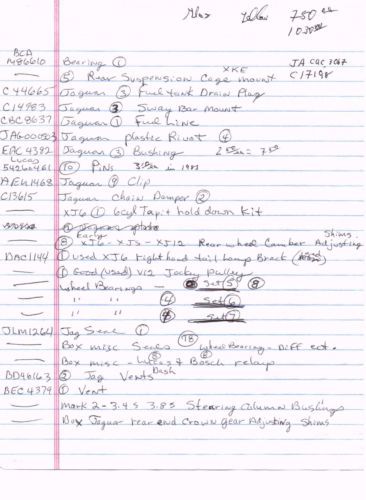 750.00
1030.00
BCA
M86610 Bearing ① JA CAC 3067
XKE
— ⑤ Rear Suspension Cage mount C17198
C44665 Jaguar ③ Fuel tank Drain Plug
C14983 Jaguar ③ Sway Bar Mount
CBC8637 Jaguar ① Fuel Line
JAG000503 Jaguar plastic Rivot ④
EAC 4382 Jaguar ③ Bushing
Lucas
54260461 ⑩ Pins in 1983
AEU1468 Jaguar ⑨ Clip
C13615 Jaguar Chain Damper ②
— XJ6 ① 6cyl Tap. + hold down kit
Early Shims.
— ⑧ XJ6 - XJS - XJ12 Rear wheel Camber Adjusting
DAC1144 ① used XJ6 right hand tail lamp Brackt
— ① Good (used) V12 Jocky pulley
— Wheel Bearings — Set ⑤ ⑧
— " " ④ Set ⑥
— " " Set ⑦
JLM1264 Jag Seal ①
— Box misc Seals 78 Wheel Bearings - Diff ect.
— Box misc - & Bosch relays
Dash
BD46163 ② Jag Vents
BEC4379 ① Vent
— Mark 2 - 3.4 S 3.8 S Stearing Column Bushings
— Box Jaguar rear end Crown Gear Adjusting Shims